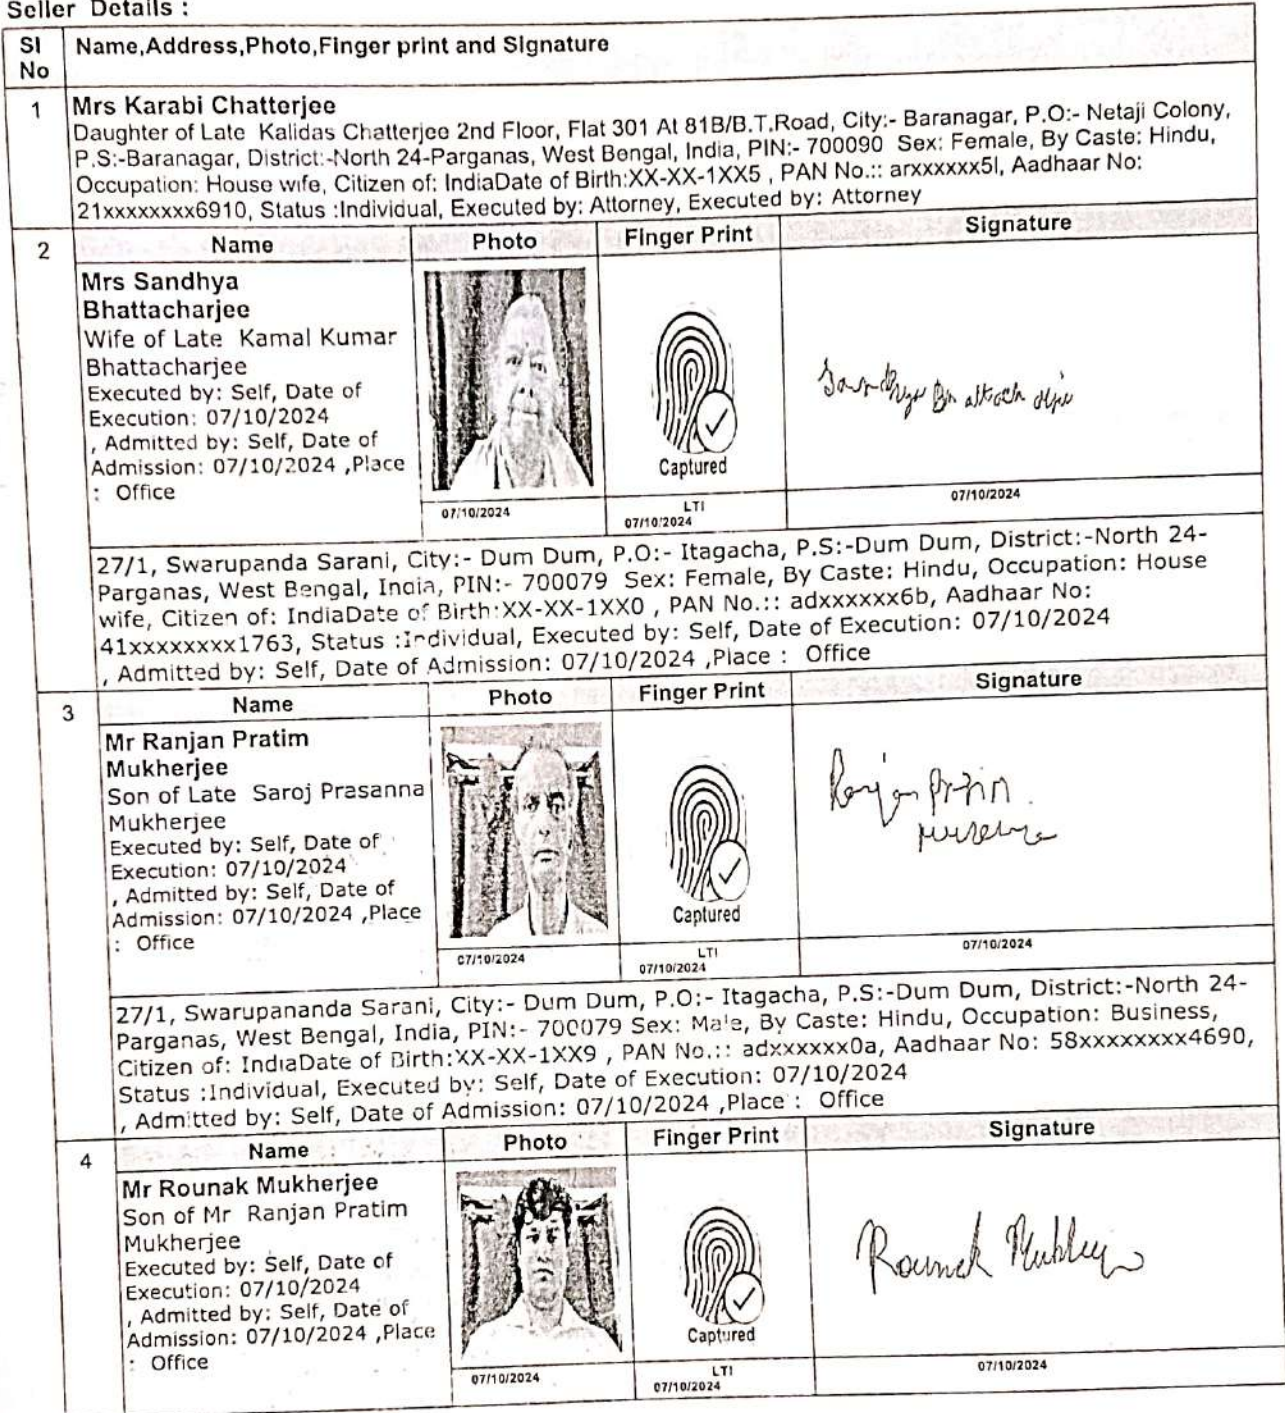 Seller Details :
Sl No
Name,Address,Photo,Finger print and Signature
1
Mrs Karabi Chatterjee
Daughter of Late Kalidas Chatterjee 2nd Floor, Flat 301 At 81B/B.T.Road, City:- Baranagar, P.O:- Netaji Colony,
P.S:-Baranagar, District:-North 24-Parganas, West Bengal, India, PIN:- 700090 Sex: Female, By Caste: Hindu,
Occupation: House wife, Citizen of: IndiaDate of Birth:XX-XX-1XX5 , PAN No.:: arxxxxxx5l, Aadhaar No:
21xxxxxxxx6910, Status :Individual, Executed by: Attorney, Executed by: Attorney
2
Name Photo Finger Print Signature
Mrs Sandhya
Bhattacharjee
Wife of Late Kamal Kumar
Bhattacharjee
Executed by: Self, Date of
Execution: 07/10/2024
, Admitted by: Self, Date of
Admission: 07/10/2024 ,Place
: Office
Captured
Sandhya Bhattacharjee
07/10/2024
LTI
07/10/2024
07/10/2024
27/1, Swarupanda Sarani, City:- Dum Dum, P.O:- Itagacha, P.S:-Dum Dum, District:-North 24-
Parganas, West Bengal, India, PIN:- 700079 Sex: Female, By Caste: Hindu, Occupation: House
wife, Citizen of: IndiaDate of Birth:XX-XX-1XX0 , PAN No.:: adxxxxxx6b, Aadhaar No:
41xxxxxxxx1763, Status :Individual, Executed by: Self, Date of Execution: 07/10/2024
, Admitted by: Self, Date of Admission: 07/10/2024 ,Place : Office
3
Name Photo Finger Print Signature
Mr Ranjan Pratim
Mukherjee
Son of Late Saroj Prasanna
Mukherjee
Executed by: Self, Date of
Execution: 07/10/2024
, Admitted by: Self, Date of
Admission: 07/10/2024 ,Place
: Office
Captured
Ranjan
07/10/2024
LTI
07/10/2024
07/10/2024
27/1, Swarupananda Sarani, City:- Dum Dum, P.O:- Itagacha, P.S:-Dum Dum, District:-North 24-
Parganas, West Bengal, India, PIN:- 700079 Sex: Male, By Caste: Hindu, Occupation: Business,
Citizen of: IndiaDate of Birth:XX-XX-1XX9 , PAN No.:: adxxxxxx0a, Aadhaar No: 58xxxxxxxx4690,
Status :Individual, Executed by: Self, Date of Execution: 07/10/2024
, Admitted by: Self, Date of Admission: 07/10/2024 ,Place : Office
4
Name Photo Finger Print Signature
Mr Rounak Mukherjee
Son of Mr Ranjan Pratim
Mukherjee
Executed by: Self, Date of
Execution: 07/10/2024
, Admitted by: Self, Date of
Admission: 07/10/2024 ,Place
: Office
Captured
Rounak Mukherjee
07/10/2024
LTI
07/10/2024
07/10/2024